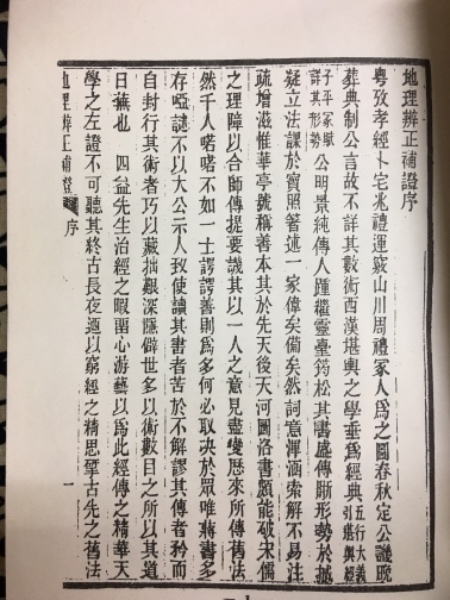 地理辨正補證序
粵攷孝經卜宅兆禮運竅山川周禮冢人爲之圖春秋定公譏晚
葬典制公言故不詳其數術西漢堪輿之學垂爲經典五行大義引堪輿經
子平冢賦詳其形勢公明景純傳人踵繼靈臺筠松其書盛傳斷形勢於撼
疑立法課於寶照著述一家偉矣備矣然詞意渾涵索解不易注
疏增滋惟華亭號稱善本其於先天後天河圖洛書頗能破宋儒
之理障以合師傳提要譏其以一人之意見盡變歷來所傳舊法
然千人喏喏不如一士諤諤善則爲多何必取决於眾唯蔣書多
存啞謎不以大公示人致使讀其書者苦於不解謬其傳者矜而
自封行其術者巧以藏拙艱深隱僻世多以術數目之所以其道
日蕪也 四益先生治經之暇畱心游藝以爲此經傳之精華天
學之左證不可聽其終古長夜迺以窮經之精思闡古先之舊法
地理辨正補證 序 一